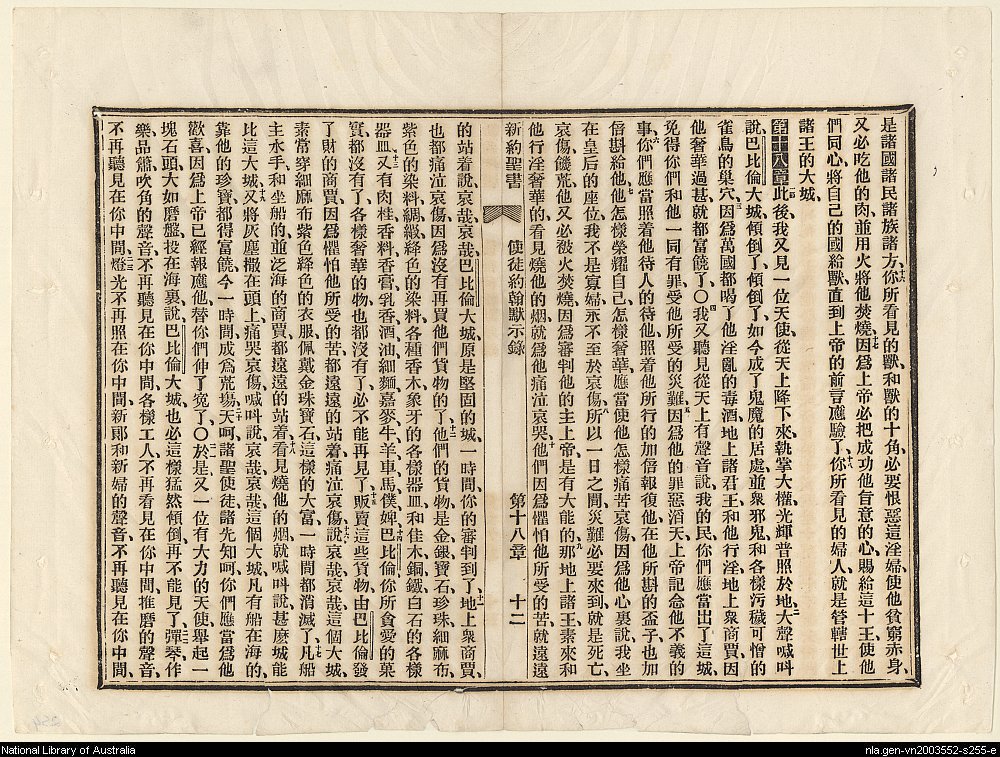 是諸國諸民諸族諸方、十六你所看見的獸、和獸的十角、必要恨惡這淫婦使他貧窮赤身、
又必吃他的肉、並用火將他焚燒、十七因爲上帝必把成功他旨意的心、賜給這十王使他
們同心將自己的國給獸、直到上帝的前言應驗了、十八你所看見的婦人、就是管轄世上
諸王的大城、
第十八章一節此後、我又見一位天使、從天上降下來、執掌大權、光輝普照於地、二大聲喊叫
說、巴比倫大城傾倒了、傾倒了、如今成了鬼魔的居處、並衆邪鬼和各樣污穢可憎的
雀鳥的巢穴、三因爲萬國都喝了他淫亂的毒酒、地上諸君王和他行淫、地上衆商賈因
他奢華過甚、就都富饒了〇四我又聽見從天上有聲音說、我的民、你們應當出了這城、
免得你們和他一同有罪、受他所受的災難、五因爲他的罪惡滔天、上帝記念他不義的
事、六你們應當照着他待人的待他、照着他所行的加倍報復他、在他所斟的盃子、也加
倍斟給他、七他怎樣榮耀自己、怎樣奢華、應當使他怎樣痛苦哀傷、因爲他心裏說、我坐
在皇后的座位、我不是寡婦、永不至於哀傷、八所以一日之間、災難必要來到、就是死亡、
哀傷、饑荒、他又必被火焚燒、因爲審判他的主上帝、是有大能的、九那地上諸王、素來和
他行淫奢華的、看見燒他的烟、就爲他痛泣哀哭、十他們因爲懼怕他所受的苦、就遠遠
新約聖書 使徒約翰默示錄 第十八章 十二
的站着說、哀哉哀哉、巴比倫大城、原是堅固的城、一時間、你的審判到了、十一地上衆商賈、
也都痛泣哀傷、因爲沒有再買他們貨物的了、十二他們的貨物、是金銀寶石珍珠細麻布、
紫色的染料、綢緞、絳色的染料、各種香木、象牙的各樣器皿、和佳木銅鐵白石的各樣
器皿、十三又有肉桂、香料、香膏、乳香、酒、油、細麵、嘉麥、牛、羊、車、馬、僕婢、十四巴比倫你所貪愛的菓
實、都沒有了、各樣奢華的物也都沒有了、必不能再見了、十五販賣這些貨物、由巴比倫發
了財的商賈、因爲懼怕他所受的苦、都遠遠的站着、痛泣哀傷說、十六哀哉哀哉、這個大城、
素常穿細麻布、紫色絳色的衣服、佩戴金珠寶石、這樣的大富、一時間都消滅了、十七凡船
主、水手、和坐船的、並泛海的商賈、都遠遠的站着、十八看見燒他的烟、就喊叫說、甚麽城能
比這大城、十九又將灰塵撒在頭上、痛哭哀傷喊叫說、哀哉哀哉、這個大城、凡有船在海的、
靠他的珍寶都得富饒、今一時間、成爲荒場、二十天呵、諸聖使徒諸先知呵、你們應當爲他
歡喜、因爲上帝已經報應他、替你們伸了寃了〇二一於是又一位有大力的天使、舉起一
塊石頭、大如磨盤、投在海裏說、巴比倫大城、也必這樣猛然傾倒、再不能見了、二二彈琴、作
樂、品簫、吹角的聲音、不再聽見在你中間、各樣工人、不再看見在你中間、推磨的聲音、
不再聽見在你中間、二三燈光不再照在你中間、新郞和新婦的聲音、不再聽見在你中間、
National Library of Australia
nla.gen-vn2003552-s255-e